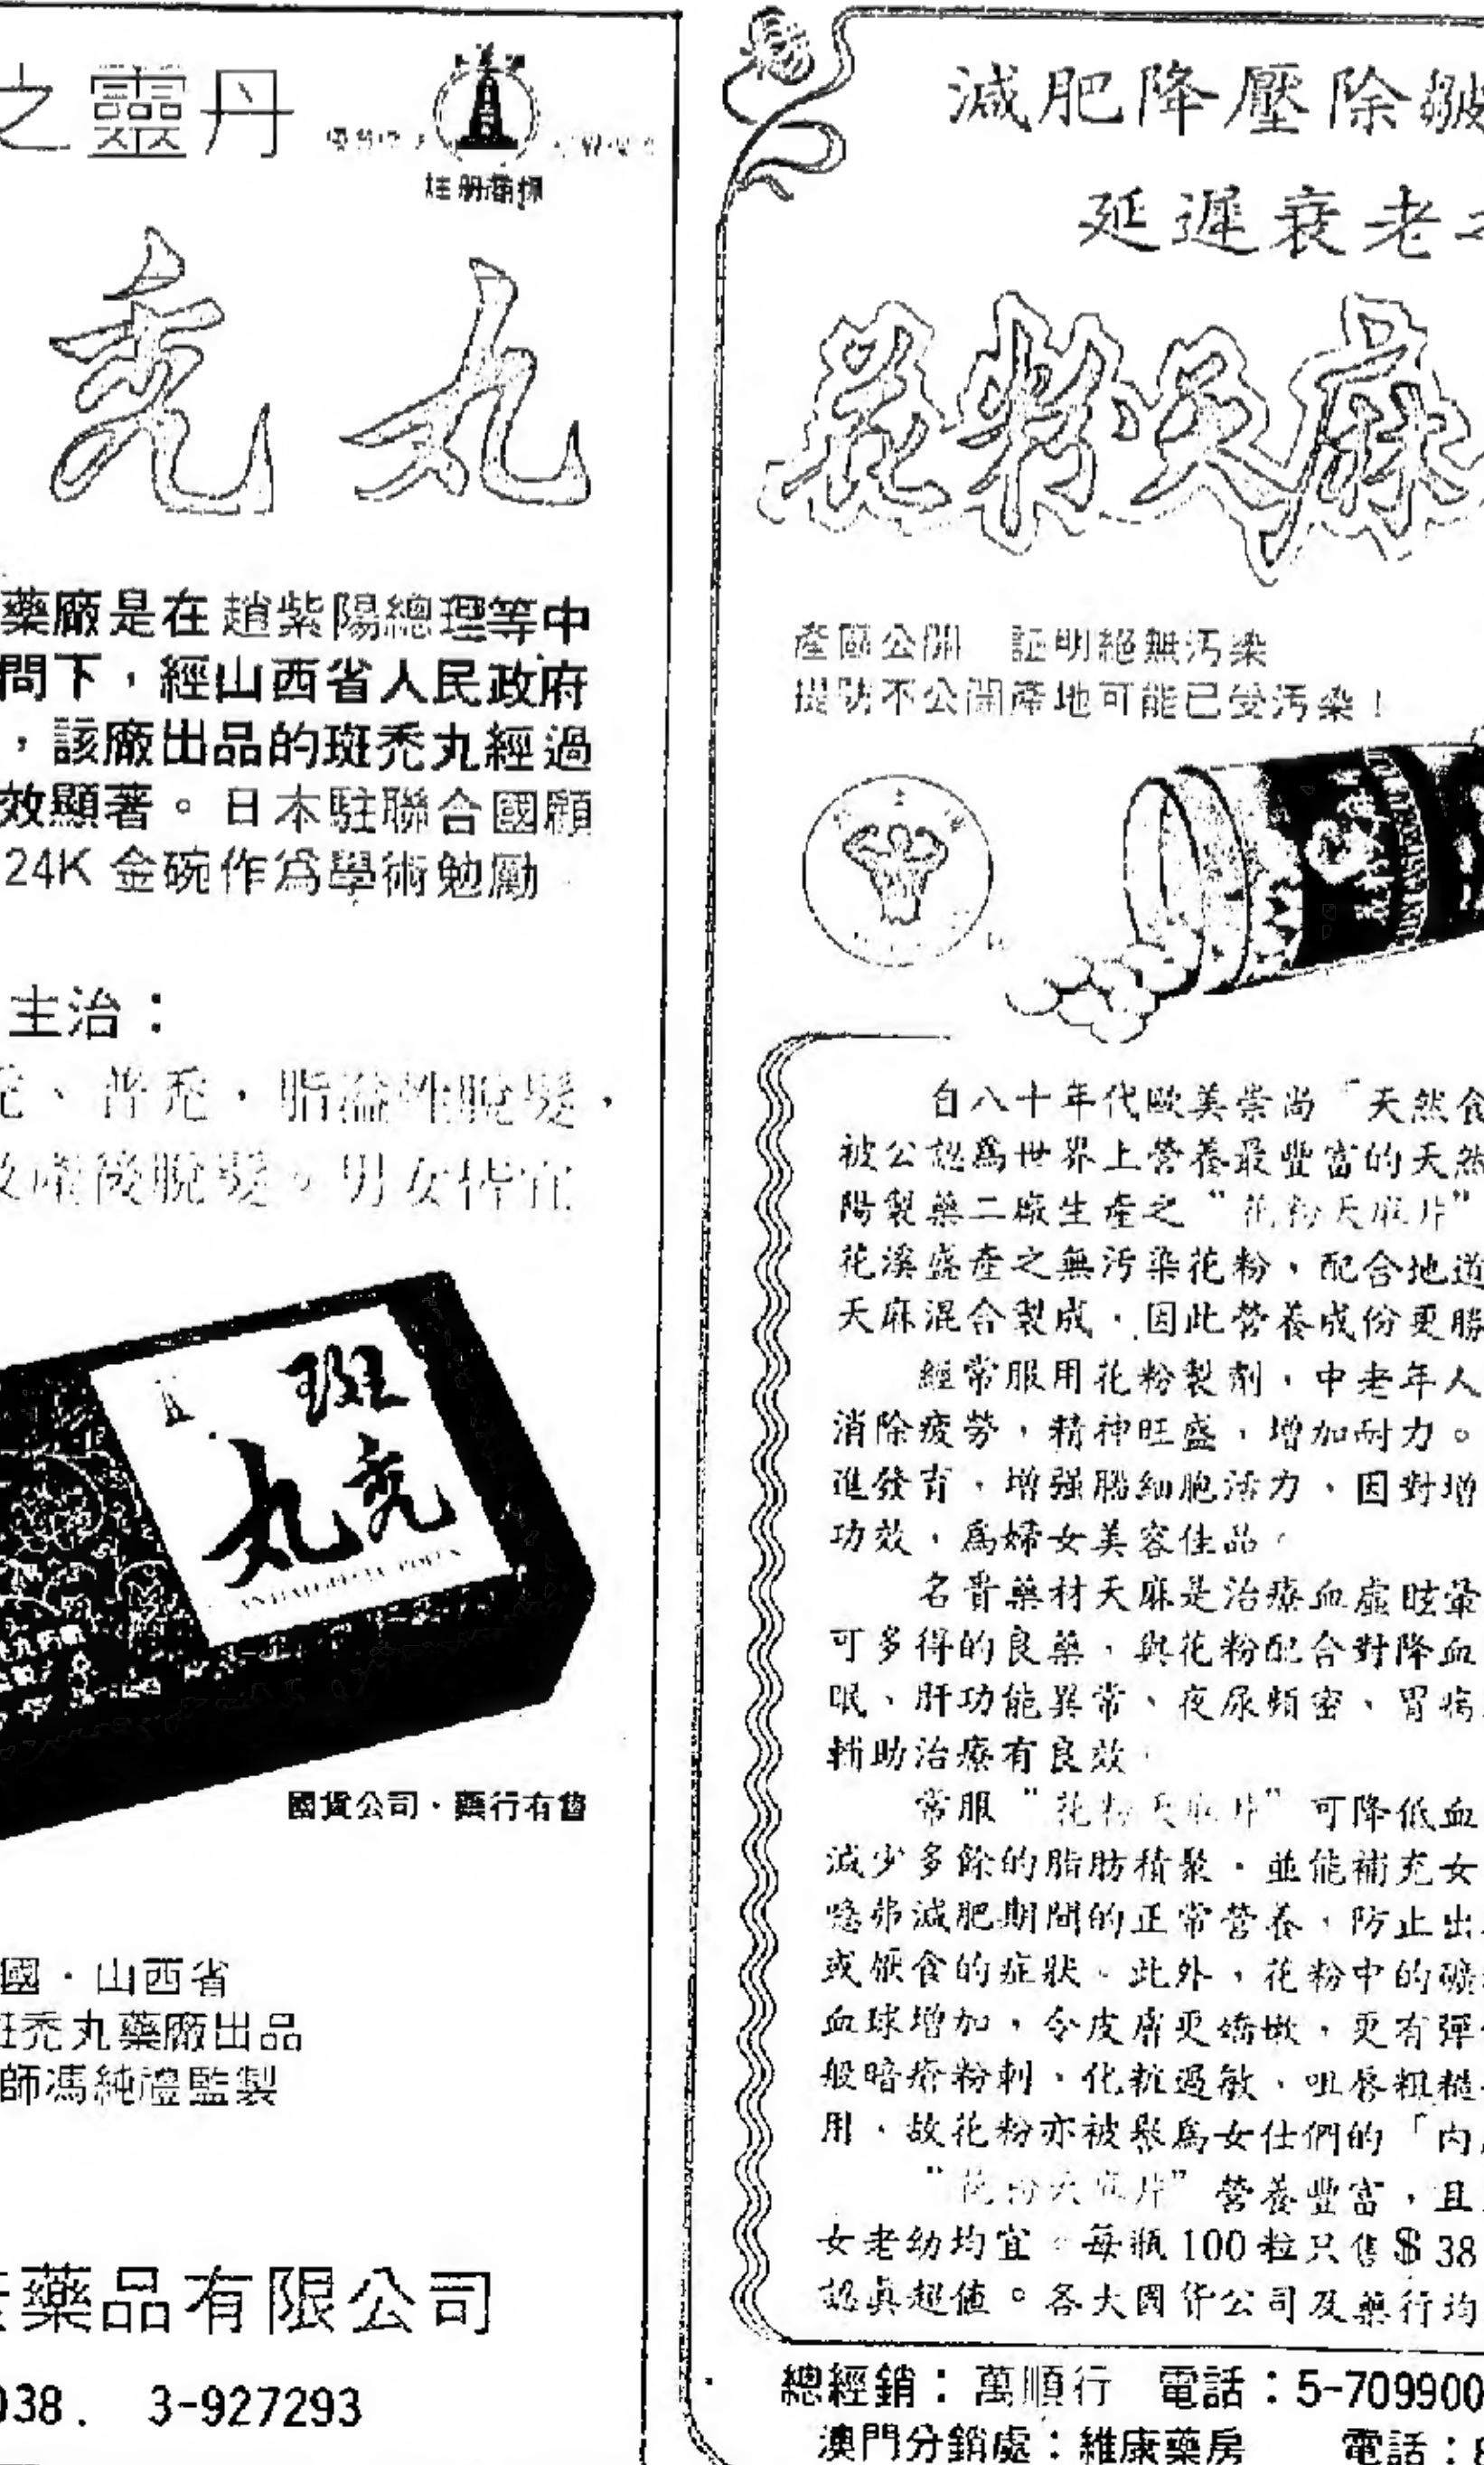 之靈丹
註册商標
禿丸
藥廠是在趙紫陽總理等中
問下，經山西省人民政府
，該廠出品的斑禿丸經過
效顯著。日本駐聯合國顧
24K 金碗作為學術勉勵
主治：
禿、普禿，脂溢性脫髮，
產後脫髮。男女皆宜
斑
禿
丸
國貨公司・藥行有售
國・山西省
斑禿丸藥廠出品
師馮純禮監製
藥品有限公司
038. 3-927293
減肥降壓除皺
延遲衰老
花粉天麻
產區公開 証明絕無汚染
提防不公開產地可能已受汚染！
自八十年代歐美崇尚「天然食
被公認爲世界上營養最豐富的天然
陽製藥二廠生產之“花粉天麻片”
花溪盛產之無汚染花粉，配合地道
天麻混合製成，因此營養成份更勝
經常服用花粉製劑，中老年人
消除疲勞，精神旺盛，增加耐力。
進發育，增强腦細胞活力，因對增
功效，爲婦女美容佳品。
名貴藥材天麻是治療血虛眩暈
可多得的良藥，與花粉配合對降血
眠、肝功能異常、夜尿頻密、胃病
輔助治療有良效。
常服“花粉天麻片”可降低血
減少多餘的脂肪積聚，並能補充女
減肥期間的正常營養，防止出
或厭食的症狀。此外，花粉中的礦
血球增加，令皮膚更嬌嫩，更有彈
般暗瘡粉刺、化粧過敏、咀唇粗糙
用，故花粉亦被譽爲女仕們的「內
“花粉天麻片”營養豐富，且
女老幼均宜。每瓶100粒只售$38
認眞超值。各大國貨公司及藥行均
總經銷：萬順行 電話：5-709900
澳門分銷處：維康藥房 電話：8